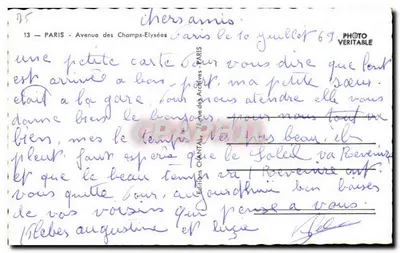 35
chers amis.
13 — PARIS - Avenue des Champs-Elysées
Paris le 10 Juillet 69
PHOTO
VERITABLE
une petite carte Pour vous dire que tout
est arrivé a bon port ma petite sœur
etait a la gare Pour nous atendre elle vous
donne bien le bonjour pour nous tout va
bien, mes le temps pas beau, il
pleut faut espére que le Soleil va Revenir
et que le beau temps va Revenire ont
vous quitte Pour aujourdhuie bon baises
de vos voisins qui pense a vous.
Klebes augustine et lucie
Editions CHANTAL - Rue des Archives - PARIS
CPARAMA